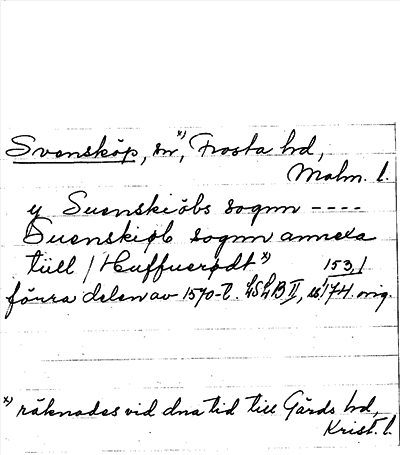 Svensköp, sn x), Frosta hd,
Malm. l.
y Suenskiöbs sognn ----
Suenskiøb sognn annexa
tiill / Huffuerødt x) 153,1
förra delen av 1570-t. LSLB II, s. 174. orig.
x) räknades vid dna tid till Gärds hd,
Krist. l.